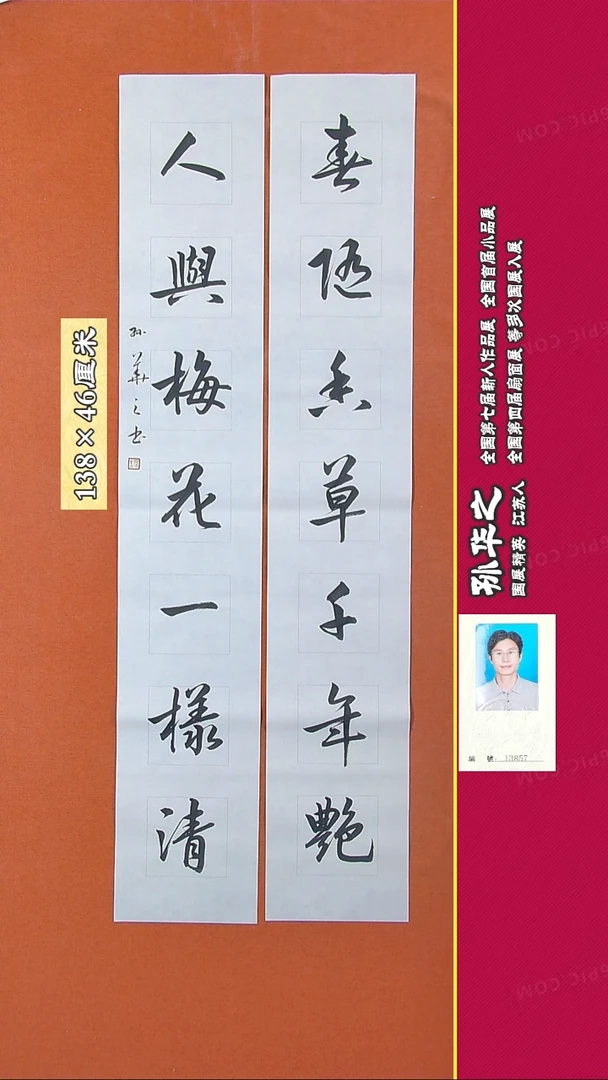 春随香草千年艷
人與梅花一樣清
孙華之书
138×46厘米
孙华之
国展精英 江苏人
全国第七届新人作品展 全国首届小品展
全国第四届扇面展 等多次国展入展
編 號: 13857